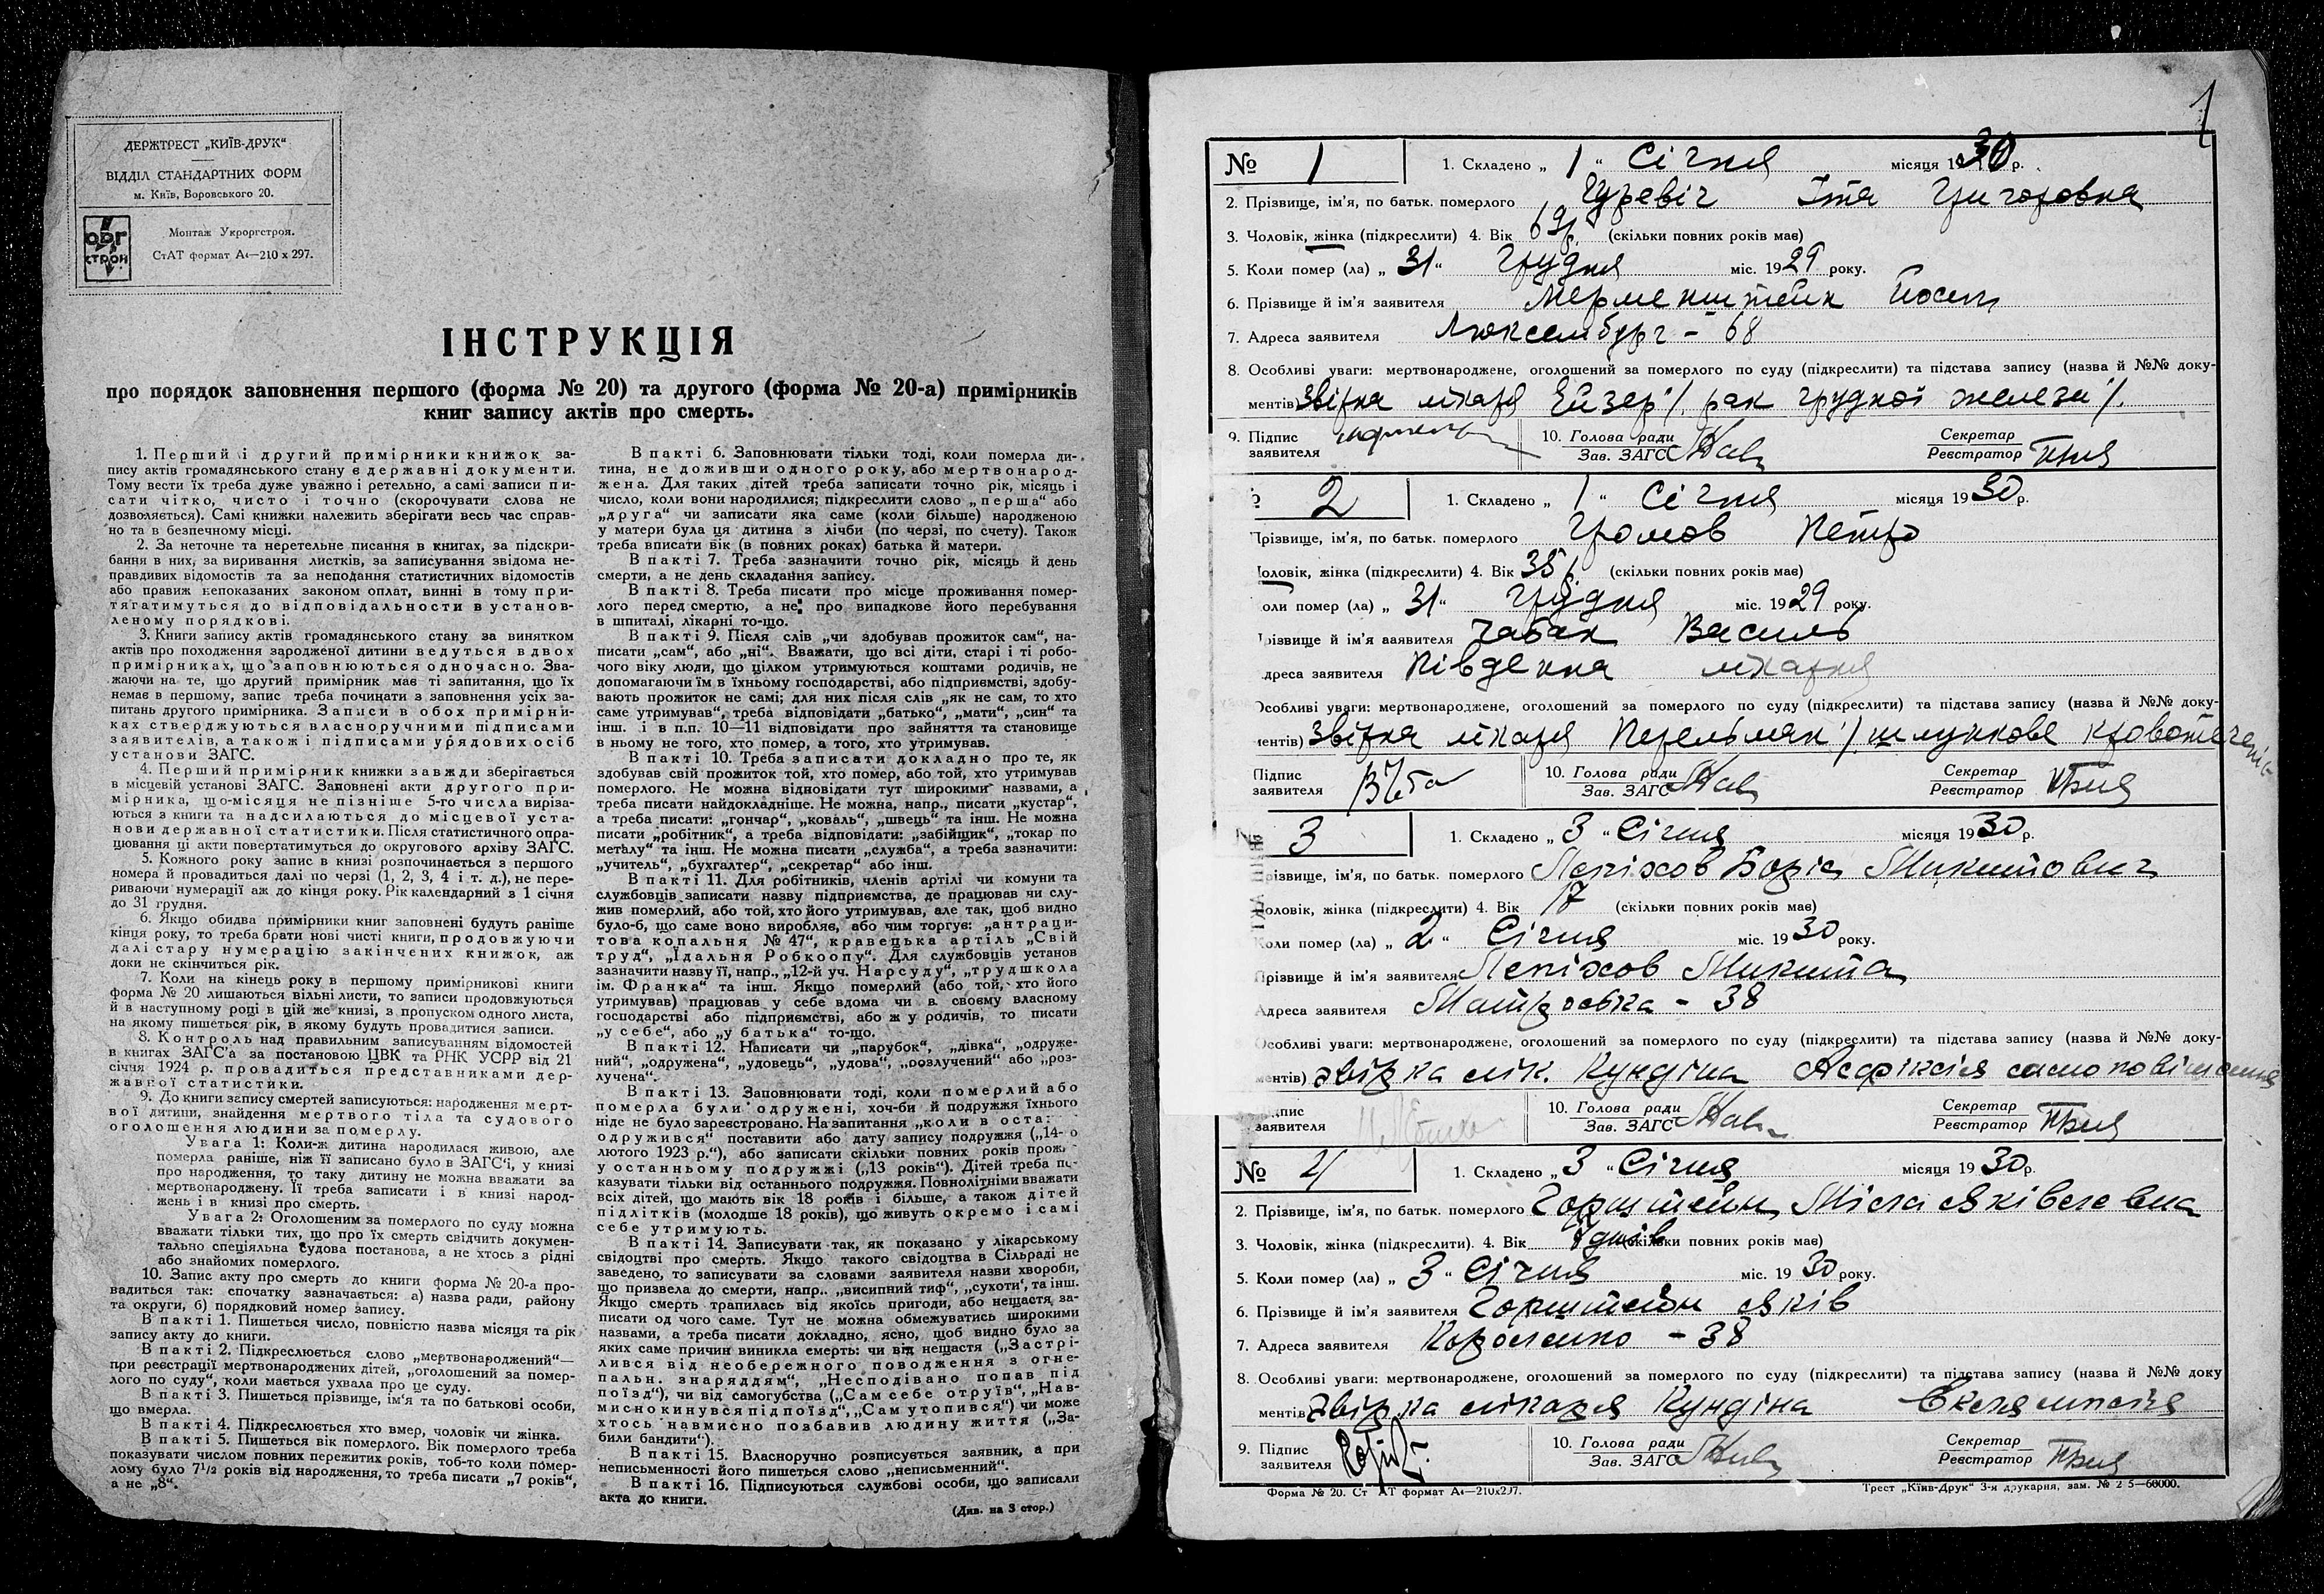 ДЕРЖТРЕСТ „КИЇВ-ДРУК“
ВІДДІЛ СТАНДАРТНИХ ФОРМ
м. Київ, Воровського 20.
ОРГ
СТРОЙ
Монтаж Укроргстроя.
СтАТ формат А4—210 х 297.
ІНСТРУКЦІЯ
про порядок заповнення першого (форма № 20) та другого (форма № 20-а) примірників
книг запису актів про смерть.
1. Перший і другий примірники книжок за-
пису актів громадянського стану є державні документи.
Тому вести їх треба дуже уважно і ретельно, а самі записи пи-
сати чітко, чисто і точно (скорочувати слова не
дозволяється). Самі книжки належить зберігати весь час справ-
но та в безпечному місці.
2. За неточне та неретельне писання в книгах, за підскри-
бання в них, за виривання листків, за записування звідома не-
правдивих відомостів та за неподання статистичних відомостів
або правиж непоказаних законом оплат, винні в тому при-
тягатимуться до відповідальности в установ-
леному порядкові.
3. Книги запису актів громадянського стану за винятком
актів про походження зародженої дитини ведуться в двох
примірниках, що заповнюються одночасно. Зва-
жаючи на те, що другий примірник має ті запитання, що їх
немає в першому, запис треба починати з заповнення усіх за-
питань другого примірника. Записи в обох примірни-
ках стверджуються власноручними підписами
заявителів, а також і підписами урядових осіб
установи ЗАГС.
4. Перший примірник книжки завжди зберігається
в місцевій установі ЗАГС. Заповнені акти другого при-
мірника, що-місяця не пізніше 5-го числа виріза-
ються з книги та надсилаються до місцевої уста-
нови державної статистики. Після статистичного опра-
цювання ці акти повертатимуться до округового архіву ЗАГС.
5. Кожного року запис в книзі розпочинається з першого
номера й провадиться далі по черзі (1, 2, 3, 4 і т. д.), не пере-
риваючи нумерації аж до кінця року. Рік календарний з 1 січня
до 31 грудня.
6. Якщо обидва примірники книг заповнені будуть раніше
кінця року, то треба брати нові чисті книги, продовжуючи
далі стару нумерацію закінчених книжок, аж
доки не скінчиться рік.
7. Коли на кінець року в першому примірникові книги
форма № 20 лишаються вільні листи, то записи продовжуються
й в наступному році в цій же книзі, з пропуском одного листа,
на якому пишеться рік, в якому будуть провадитися записи.
8. Контроль над правильним записуванням відомостей
в книгах ЗАГС'а за постановою ЦВК та РНК УСРР від 21
січня 1924 р. провадиться представниками дер-
жавної статистики.
9. До книги запису смертей записуються: народження мерт-
вої дитини, знайдення мертвого тіла та судового
оголошення людини за померлу.
Увага 1: Коли-ж дитина народилася живою, але
померла раніше, ніж її записано було в ЗАГС'і, у книзі
про народження, то таку дитину не можна вважати за
мертвонароджену. Її треба записати і в книзі народ-
жень і в книзі про смерть.
Увага 2: Оголошеним за померлого по суду можна
вважати тільки тих, що про їх смерть свідчить докумен-
тально спеціяльна судова постанова, а не хтось з рідні
або знайомих померлого.
10. Запис акту про смерть до книги форма № 20-а про-
вадиться так: спочатку зазначається: а) назва ради, району
та округи, б) порядковий номер запису.
В пакті 1. Пишеться число, повністю назва місяця та рік
запису акту до книги.
В пакті 2. Підкреслюється слово „мертвонароджений“—
при реєстрації мертвонароджених дітей, „оголошений за помер-
лого по суду“, коли мається ухвала про це суду.
В пакті 3. Пишеться прізвище, ім'я та по батькові особи,
що вмерла.
В пакті 4. Підкреслюється хто вмер, чоловік чи жінка.
В пакті 5. Пишеться вік померлого. Вік померлого треба
показувати числом повних пережитих років, тоб-то коли помер-
лому було 7½ років від народження, то треба писати „7 років“,
а не „8“.
В пакті 6. Заповнювати тільки тоді, коли померла ди-
тина, не доживши одного року, або мертвонарод-
жена. Для таких дітей треба записати точно рік, місяць і
число, коли вони народилися; підкреслити слово „перша“ або
„друга“ чи записати яка саме (коли більше) народженою
у матери була ця дитина з лічби (по черзі, по счету). Також
треба вписати вік (в повних роках) батька й матери.
В пакті 7. Треба зазначити точно рік, місяць й день
смерти, а не день складання запису.
В пакті 8. Треба писати про місце проживання помер-
лого перед смертю, а не про випадкове його перебування
в шпиталі, лікарні то-що.
В пакті 9. Після слів „чи здобував прожиток сам“, на-
писати „сам“, або „ні“. Вважати, що всі діти, старі і ті робо-
чого віку люди, що цілком утримуються коштами родичів, не
допомагаючи їм в їхньому господарстві, або підприємстві, здобу-
вають прожиток не самі; для них після слів „як не сам, то хто
саме утримував“, треба відповідати „батько“, „мати“, „син“ та
інш. і в п.п. 10—11 відповідати про зайняття та становище
в ньому не того, хто помер, а того, хто утримував.
В пакті 10. Треба записати докладно про те, як
здобував свій прожиток той, хто помер, або той, хто утримував
померлого. Не можна відповідати тут широкими назвами, а
треба писати найдокладніше. Не можна, напр., писати „кустар“,
а треба писати: „гончар“, „коваль“, „швець“ та інш. Не можна
писати „робітник“, а треба відповідати: „забійщик“, „токар по
металу“ та інш. Не можна писати „служба“, а треба зазначити:
„учитель“, „бухгалтер“, „секретар“ або інш.
В пакті 11. Для робітників, членів артілі чи комуни та
службовців записати назву підприємства, де працював чи слу-
жив померлий, або той, хто його утримував, але так, щоб видно
було-б, що саме воно виробляє, або чим торгує: „антраци-
това копальня № 47“, кравецька артіль „Свій
труд“, „Їдальня Робкоопу“. Для службовців установ
зазначити назву її, напр., „12-й уч. Нарсуду“, „трудшкола
ім. Франка“ та інш. Якщо померлий (або той, хто його
утримував) працював у себе вдома чи в своєму власному
господарстві або підприємстві, або ж у родичів, то писати
„у себе“, або „у батька“ то-що.
В пакті 12. Написати чи „парубок“, „дівка“, „одруже-
ний“, „одружена“, „удовець“, „удова“, „розлучений“ або „роз-
лучена“.
В пакті 13. Заповнювати тоді, коли померлий або
померла були одружені, хоч-би й подружжя їхнього
ніде не було зареєстровано. На запитання „коли в оста:
одружився“ поставити або дату запису подружжя („14-о
лютого 1923 р.“), або записати скільки повних років прож.
у останньому подружжі („13 років“). Дітей треба по-
казувати тільки від останнього подружжя. Повнолітніми вважати
всіх дітей, що мають вік 18 років і більше, а також дітей
підлітків (молодше 18 років), що живуть окремо і самі
себе утримують.
В пакті 14. Записувати так, як показано у лікарському
свідоцтві про смерть. Якщо такого свідоцтва в Сільраді не
заведено, то записувати за словами заявителя назви хвороби,
що призвела до смерти, напр.. „висипний тиф“, „сухоти“, та інш.
Якщо смерть трапилась від якоїсь пригоди, або нещастя за-
писати од чого саме. Тут не можна обмежуватись широкими
назвами, а треба писати докладно, ясно, щоб видно було за
яких саме причин виникла смерть: чи від нещастя („Застрі-
лився від необережного поводження з огне-
пальн. знаряддям“, „Несподівано попав під
поїзд“), чи від самогубства („Сам себе отруїв“, „Нав-
мисно кинувся під поїзд“, „Сам утопився“) чи може
хтось навмисно позбавив людину життя („За-
били бандити“).
В пакті 15. Власноручно розписується заявник, а при
неписьменності його пишеться слово „неписьменний“.
В пакті 16. Підписуються службові особи, що записали
акта до книги.
(Див. на 3 стор.)
1
№ 1 1. Складено „1“ Січня місяця 1930 р.
2. Прізвище, ім'я, по батьк. померлого Гуревіч Ітя Григоровна
3. Чоловік, жінка (підкреслити) 4. Вік 69 р. (скільки повних років має)
5. Коли помер (ла) „31“ Грудня міс. 1929 року.
6. Прізвище й ім'я заявителя Мерменштейн Йосип
7. Адреса заявителя Люксембург - 68
8. Особливі уваги: мертвонароджене, оголошений за померлого по суду (підкреслити) та підстава запису (назва й №№ доку-
ментів) Звірка лікаря Ейзер /. рак грудної железа /.
9. Підпис заявителя
10. Голова ради
Зав. ЗАГС
Секретар
Реєстратор
2 1. Складено „1“ Січня місяця 1930 р.
Прізвище, ім'я, по батьк. померлого Громов Петро
чоловік, жінка (підкреслити) 4. Вік 35 р. (скільки повних років має)
оли помер (ла) „31“ Грудня міс. 1929 року.
різвище й ім'я заявителя Чабан Василь
дреса заявителя Південна лікарня
Особливі уваги: мертвонароджене, оголошений за померлого по суду (підкреслити) та підстава запису (назва й №№ доку-
ментів) Звірка лікаря Перельман /. шлункове кровотеченіє
Підпис
заявителя
10. Голова ради
Зав. ЗАГС
Секретар
Реєстратор
3 1. Складено „3“ Січня місяця 1930 р.
різвище, ім'я, по батьк. померлого Лепіхов Боріс Микитович
чоловік, жінка (підкреслити) 4. Вік 17 (скільки повних років має)
Коли помер (ла) „2“ Січня міс. 1930 року.
Прізвище й ім'я заявителя Лепіхов Микита
Адреса заявителя Матроська - 38
Особливі уваги: мертвонароджене, оголошений за померлого по суду (підкреслити) та підстава запису (назва й №№ доку-
ментів) Звірка лік. Кундіна Асфіксія самоповішення
пис
заявителя
10. Голова ради
Зав. ЗАГС
Секретар
Реєстратор
№ 4 1. Складено „3“ Січня місяця 1930 р.
2. Прізвище, ім'я, по батьк. померлого Горнштейн Яківлевна
3. Чоловік, жінка (підкреслити). 4. Вік днів (скільки повних років має)
5. Коли помер (ла) „3“ Січня міс. 1930 року.
6. Прізвище й ім'я заявителя Горнштейн Яків
7. Адреса заявителя Короленко - 38
8. Особливі уваги: мертвонароджене, оголошений за померлого по суду (підкреслити) та підстава запису (назва й №№ доку
ментів) Звірка лікаря Кундіна Еклямпсія
9. Підпис
заявителя
10. Голова ради
Зав. ЗАГС
Секретар
Реєстратор
Форма № 20. Ст АТ формат А4—210х297.
Трест „Київ-Друк“ 3-я друкарня, зам. № 2 5—60000.